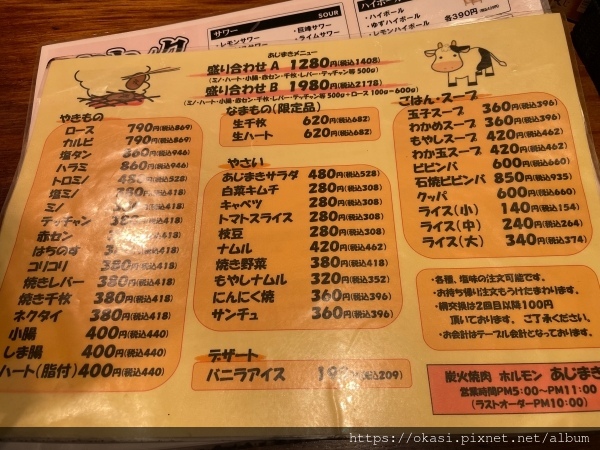 サワー SOUR
・レモンサワー
・巨峰サワー
・ライムサワー
ハイボール
・ハイボール
・ゆずハイボール
・レモンハイボール
各390円
あじまきメニュー
盛り合わせA 1280円(税込1408)
(ミノ・ハート・小腸・赤セン・千枚・レバー・テッチャン等 500g)
盛り合わせB 1980円(税込2178)
(ミノ・ハート・小腸・赤セン・千枚・レバー・テッチャン等 500g+ロース 100g=600g)
やきもの
ロース 790円(税込869)
カルビ 790円(税込869)
塩タン 860円(税込946)
ハラミ 860円(税込946)
トロミノ 480円(税込528)
塩ミノ 380円(税込418)
ミノ 380円(税込418)
テッチャン 380円(税込418)
赤セン 380円(税込418)
はちのす 380円(税込418)
コリコリ 380円(税込418)
焼きレバー 380円(税込418)
焼き千枚 380円(税込418)
ネクタイ 380円(税込418)
小腸 400円(税込440)
しま腸 400円(税込440)
ハート(脂付) 400円(税込440)
なまもの(限定品)
生千枚 620円(税込682)
生ハート 620円(税込682)
やさい
あじまきサラダ 480円(税込528)
白菜キムチ 280円(税込308)
キャベツ 280円(税込308)
トマトスライス 280円(税込308)
枝豆 280円(税込308)
ナムル 420円(税込462)
焼き野菜 380円(税込418)
もやしナムル 320円(税込352)
にんにく焼 360円(税込396)
サンチュ 360円(税込396)
デザート
バニラアイス 190円(税込209)
ごはん・スープ
玉子スープ 360円(税込396)
わかめスープ 360円(税込396)
もやしスープ 420円(税込462)
わか玉スープ 420円(税込462)
ビビンバ 600円(税込660)
石焼ビビンバ 850円(税込935)
クッパ 600円(税込660)
ライス(小) 140円(税込154)
ライス(中) 240円(税込264)
ライス(大) 340円(税込374)
・各種、塩味の注文可能です。
・お持ち帰り注文もうけたまわります。
・網交換は2回目以降100円
頂いております。ご了承ください。
・お会計はテーブル会計となっております。
炭火焼肉 ホルモン あじまき
営業時間PM5:00~PM11:00
(ラストオーダーPM10:00)
https://okasi.pixnet.net/album